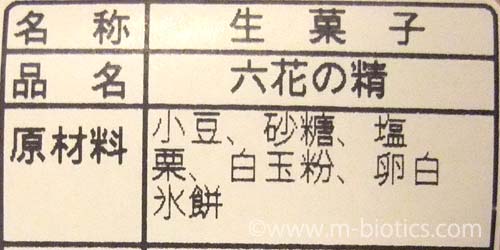 名称 生菓子
品名 六花の精
原材料 小豆、砂糖、塩
栗、白玉粉、卵白
氷餅
©www.m-biotics.com